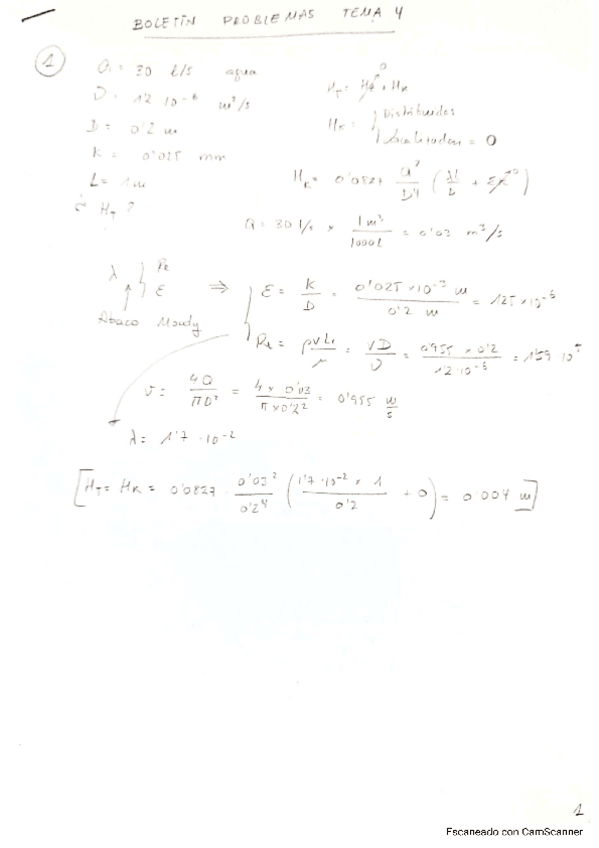 BOLETÍN PROBLEMAS TEMA 4
1
Q = 30 l/s agua
ν = 1'2 · 10⁻⁶ m²/s
D = 0'2 m
K = 0'025 mm
L = 1 m
¿ H_T ?
0
H_T = H_g + H_R
H_R = Distribuidos
Localizadas = 0
H_R = 0'0827 Q²/D⁴ (λL/D + Σξ⁰)
Q = 30 l/s × 1 m³/1000 l = 0'03 m³/s
λ Re ε
Abaco Moody
⇒ ε = K/D = 0'025 × 10⁻³ m/0'2 m = 125 × 10⁻⁶
Re = ρvL/μ = vD/ν = 0'955 × 0'2/1'2 · 10⁻⁶ = 1'59 · 10⁵
v = 4Q/πD² = 4 × 0'03/π × 0'2² = 0'955 m/s
λ = 1'7 · 10⁻²
[H_T = H_R = 0'0827 · 0'03²/0'2⁴ (1'7 · 10⁻² × 1/0'2 + 0) = 0'004 m]
1
Escaneado con CamScanner